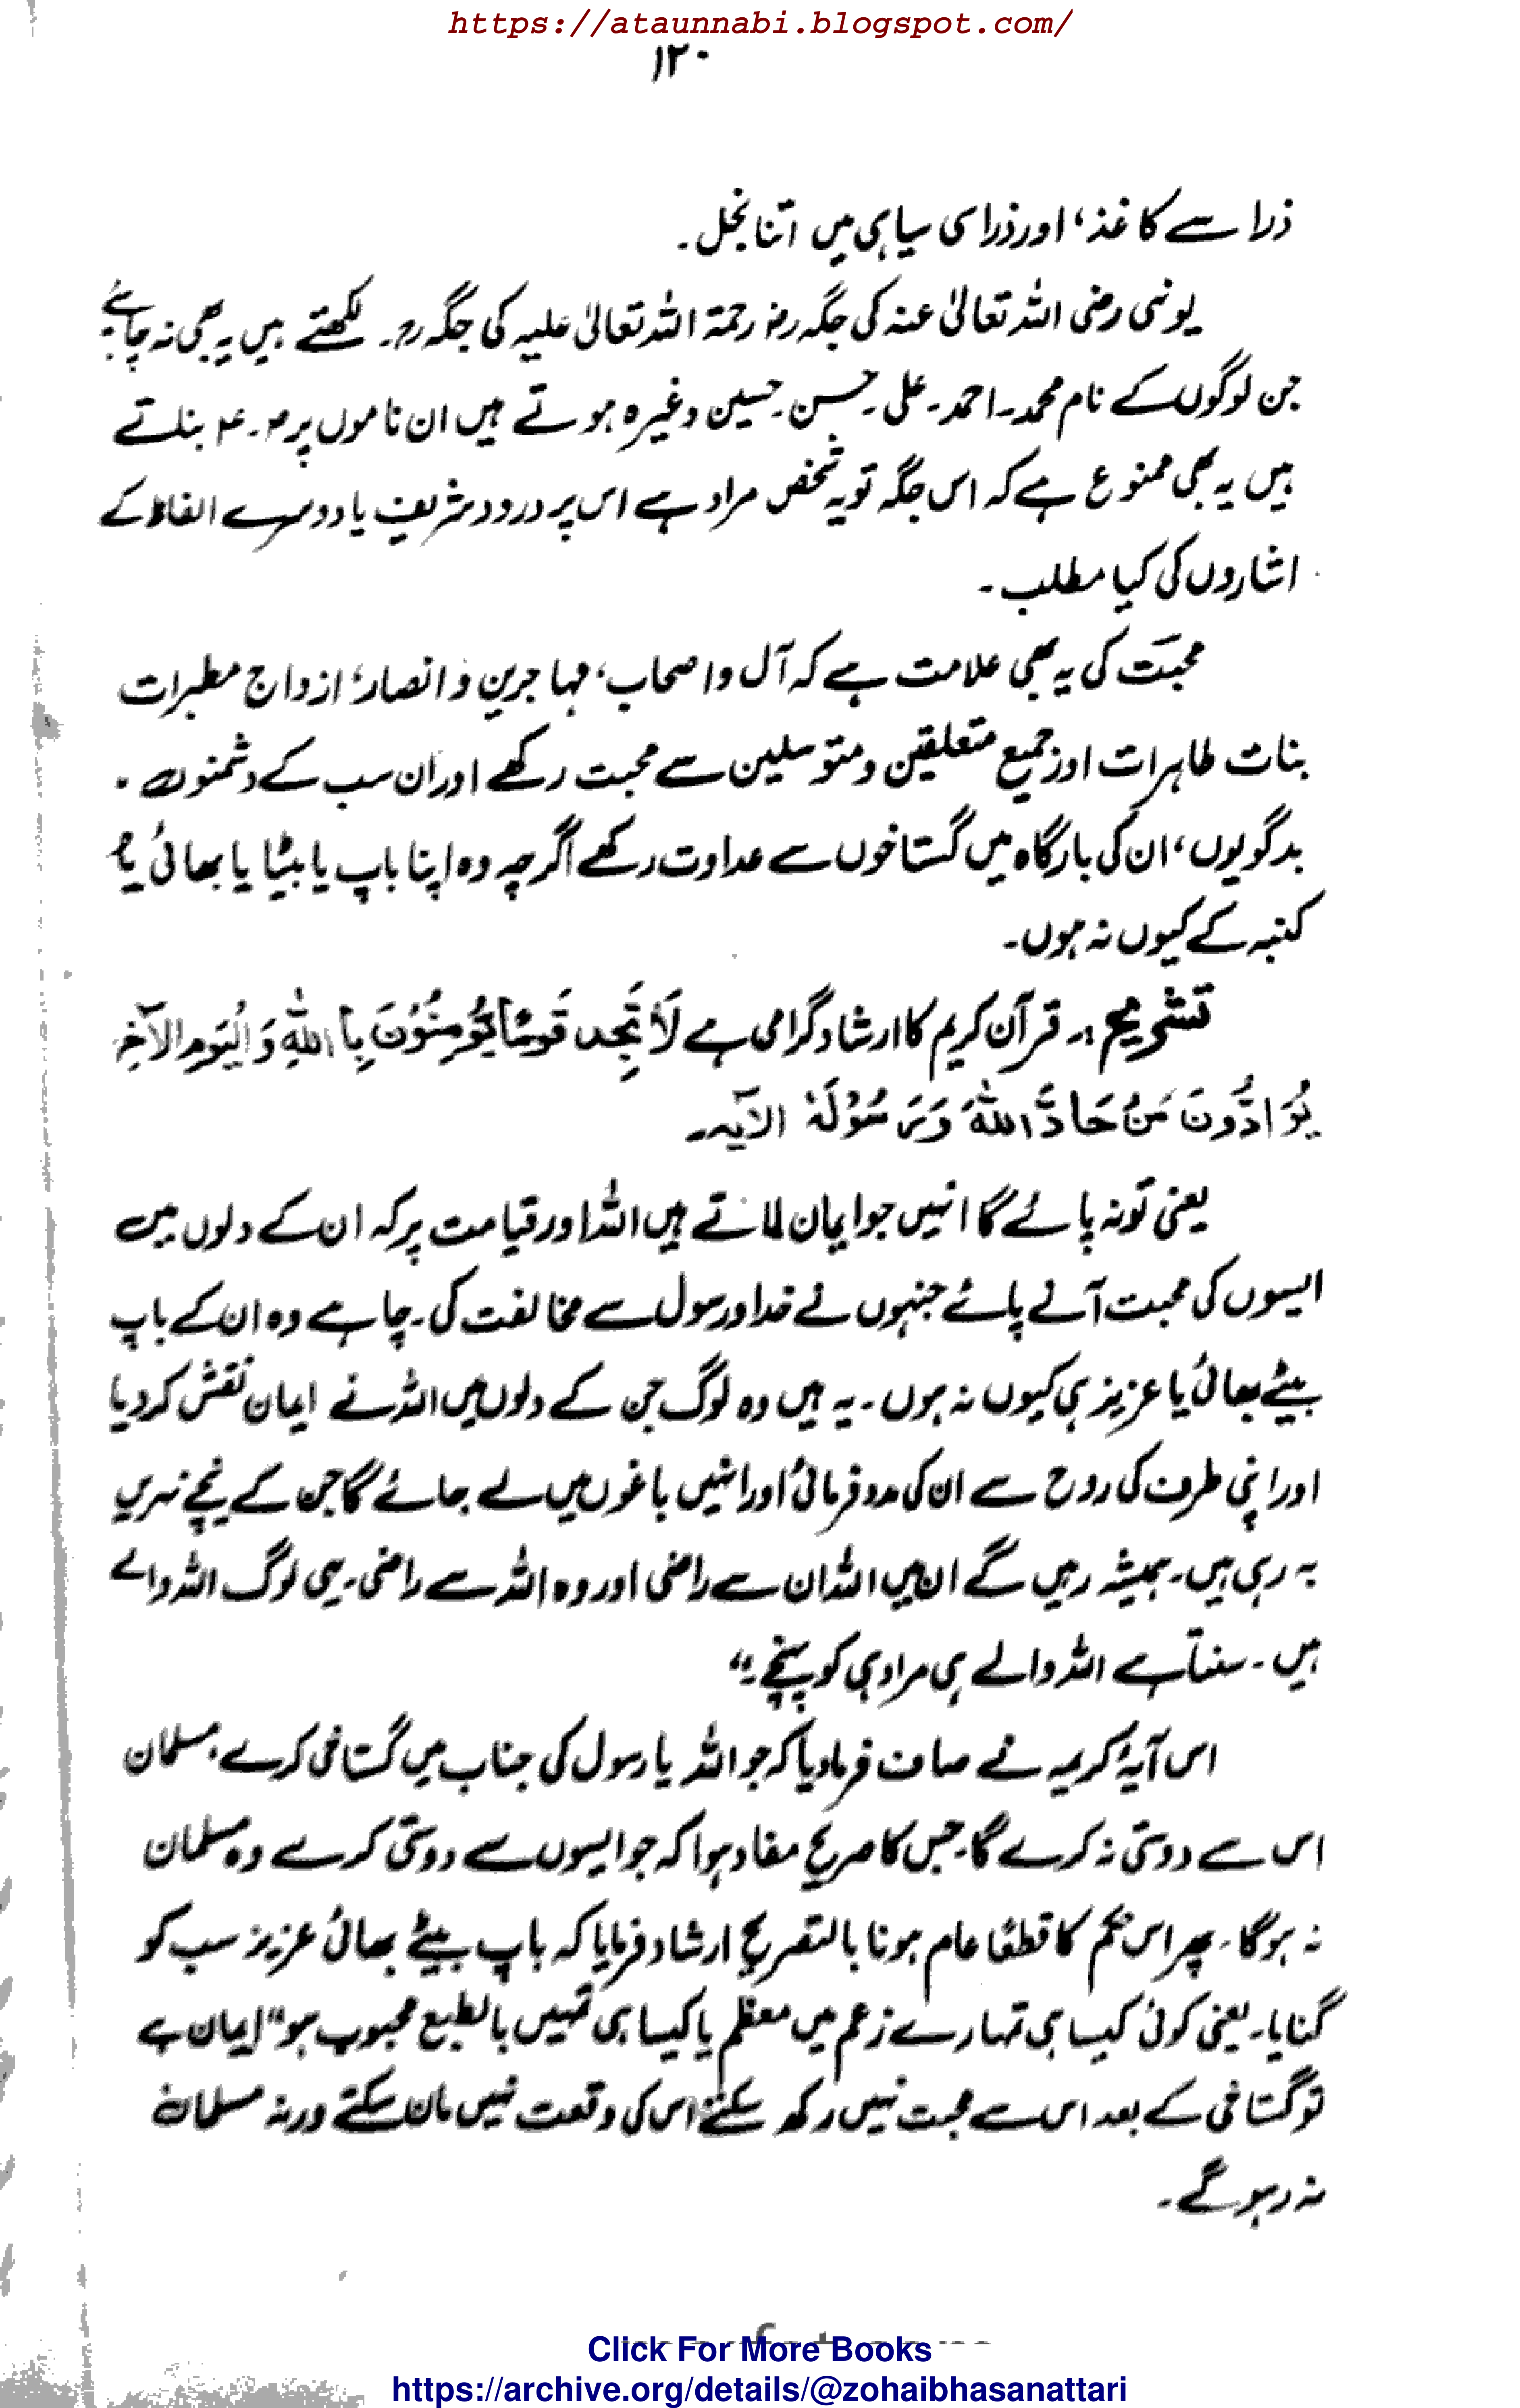 https://ataunnabi.blogspot.com/
۱۲۰
ذرا سے کاغذ، اور ذرا سی سیاہی میں اتنا بخل۔
یونہی رضی اللہ تعالیٰ عنہ کی جگہ رض رحمۃ اللہ تعالیٰ علیہ کی جگہ رح۔ لکھتے ہیں یہ بھی نہ چاہئے
جن لوگوں کے نام محمد۔ احمد۔ علی۔ حسن۔ حسین وغیرہ ہوتے ہیں ان ناموں پر ؐ۔ ؑ بناتے
ہیں یہ بھی ممنوع ہے کہ اس جگہ تو یہ شخص مراد ہے اس پر درود شریف یا دوسرے الفاظ کے
اشاروں کی کیا مطلب۔
محبت کی یہ بھی علامت ہے کہ آل و اصحاب، مہاجرین و انصار، ازواج مطہرات
بنات طاہرات اور جمیع متعلقین و متوسلین سے محبت رکھے اور ان سب کے دشمنوں۔
بدگویوں، ان کی بارگاہ میں گستاخوں سے عداوت رکھے اگرچہ وہ اپنا باپ یا بیٹا یا بھائی یا
کنبہ کے کیوں نہ ہوں۔
تشریح :۔ قرآن کریم کا ارشاد گرامی ہے لَا تَجِد قَومًا یُّؤمِنُوْنَ بِا اللّٰہِ وَالْیَومِ الآخِرِ
یُوَادُّونَ مَنْ حَادَّ اللہَ وَرَسُوْلَہٗ الآیہ۔
یعنی تو نہ پائے گا انہیں جو ایمان لاتے ہیں اللہ اور قیامت پر کہ ان کے دلوں میں
ایسوں کی محبت آنے پائے جنہوں نے خدا ورسول سے مخالفت کی۔ چاہے وہ ان کے باپ
بیٹے بھائی یا عزیز ہی کیوں نہ ہوں۔ یہ ہیں وہ لوگ جن کے دلوں میں اللہ نے ایمان نقش کردیا
اور اپنی طرف کی روح سے ان کی مدد فرمائی اور انہیں باغوں میں لے جائے گا جن کے نیچے نہریں
بہ رہی ہیں۔ ہمیشہ رہیں گے ان میں اللہ ان سے راضی اور وہ اللہ سے راضی۔ یہی لوگ اللہ والے
ہیں۔ سنتا ہے اللہ والے ہی مراد ہی کو پہنچے۔"
اس آیۂ کریمہ نے صاف فرمادیا کہ جو اللہ یا رسول کی جناب میں گستاخی کرے، مسلمان
اس سے دوستی نہ کرے گا۔ جس کا صریح مفاد ہوا کہ جو ایسوں سے دوستی کرے وہ مسلمان
نہ ہوگا۔ پھر اس حکم کا قطعًا عام ہونا بالتصریح ارشاد فرمایا کہ باپ بیٹے بھائی عزیز سب کو
گنایا۔ یعنی کوئی کیسا ہی تمہارے زعم میں معظم یا کیسا ہی تمہیں بالطبع محبوب ہو "ایمان ہے
تو گستاخی کے بعد اس سے محبت نہیں رکھ سکتے اس کی وقعت نہیں مان سکتے ورنہ مسلمان
نہ رہو گے۔
Click For More Books
https://archive.org/details/@zohaibhasanattari